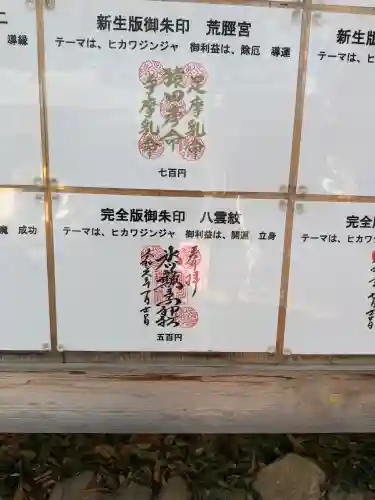 導縁
新生版御朱印 荒脛宮
テーマは、ヒカワジンジャ 御利益は、除厄 導運
足摩乳命
猿田彦命
手摩乳命
七百円
新生版
テーマは、ヒ
魔 成功
完全版御朱印 八雲紋
テーマは、ヒカワジンジャ 御利益は、開運 立身
奉拝
五百円
完全版
テーマは、ヒ